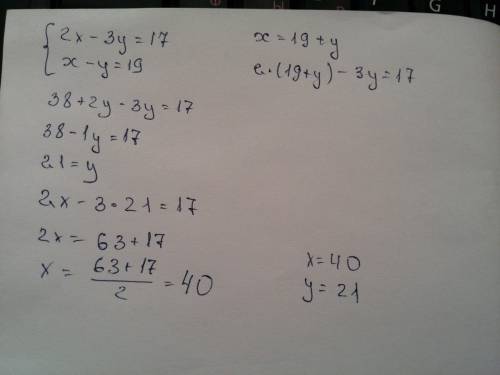 { 2x - 3y = 17
x - y = 19
x = 19 + y
2·(19+y) - 3y = 17
38 + 2y - 3y = 17
38 - 1y = 17
21 = y
2x - 3·21 = 17
2x = 63 + 17
x = (63+17)/2 = 40
x = 40
y = 21